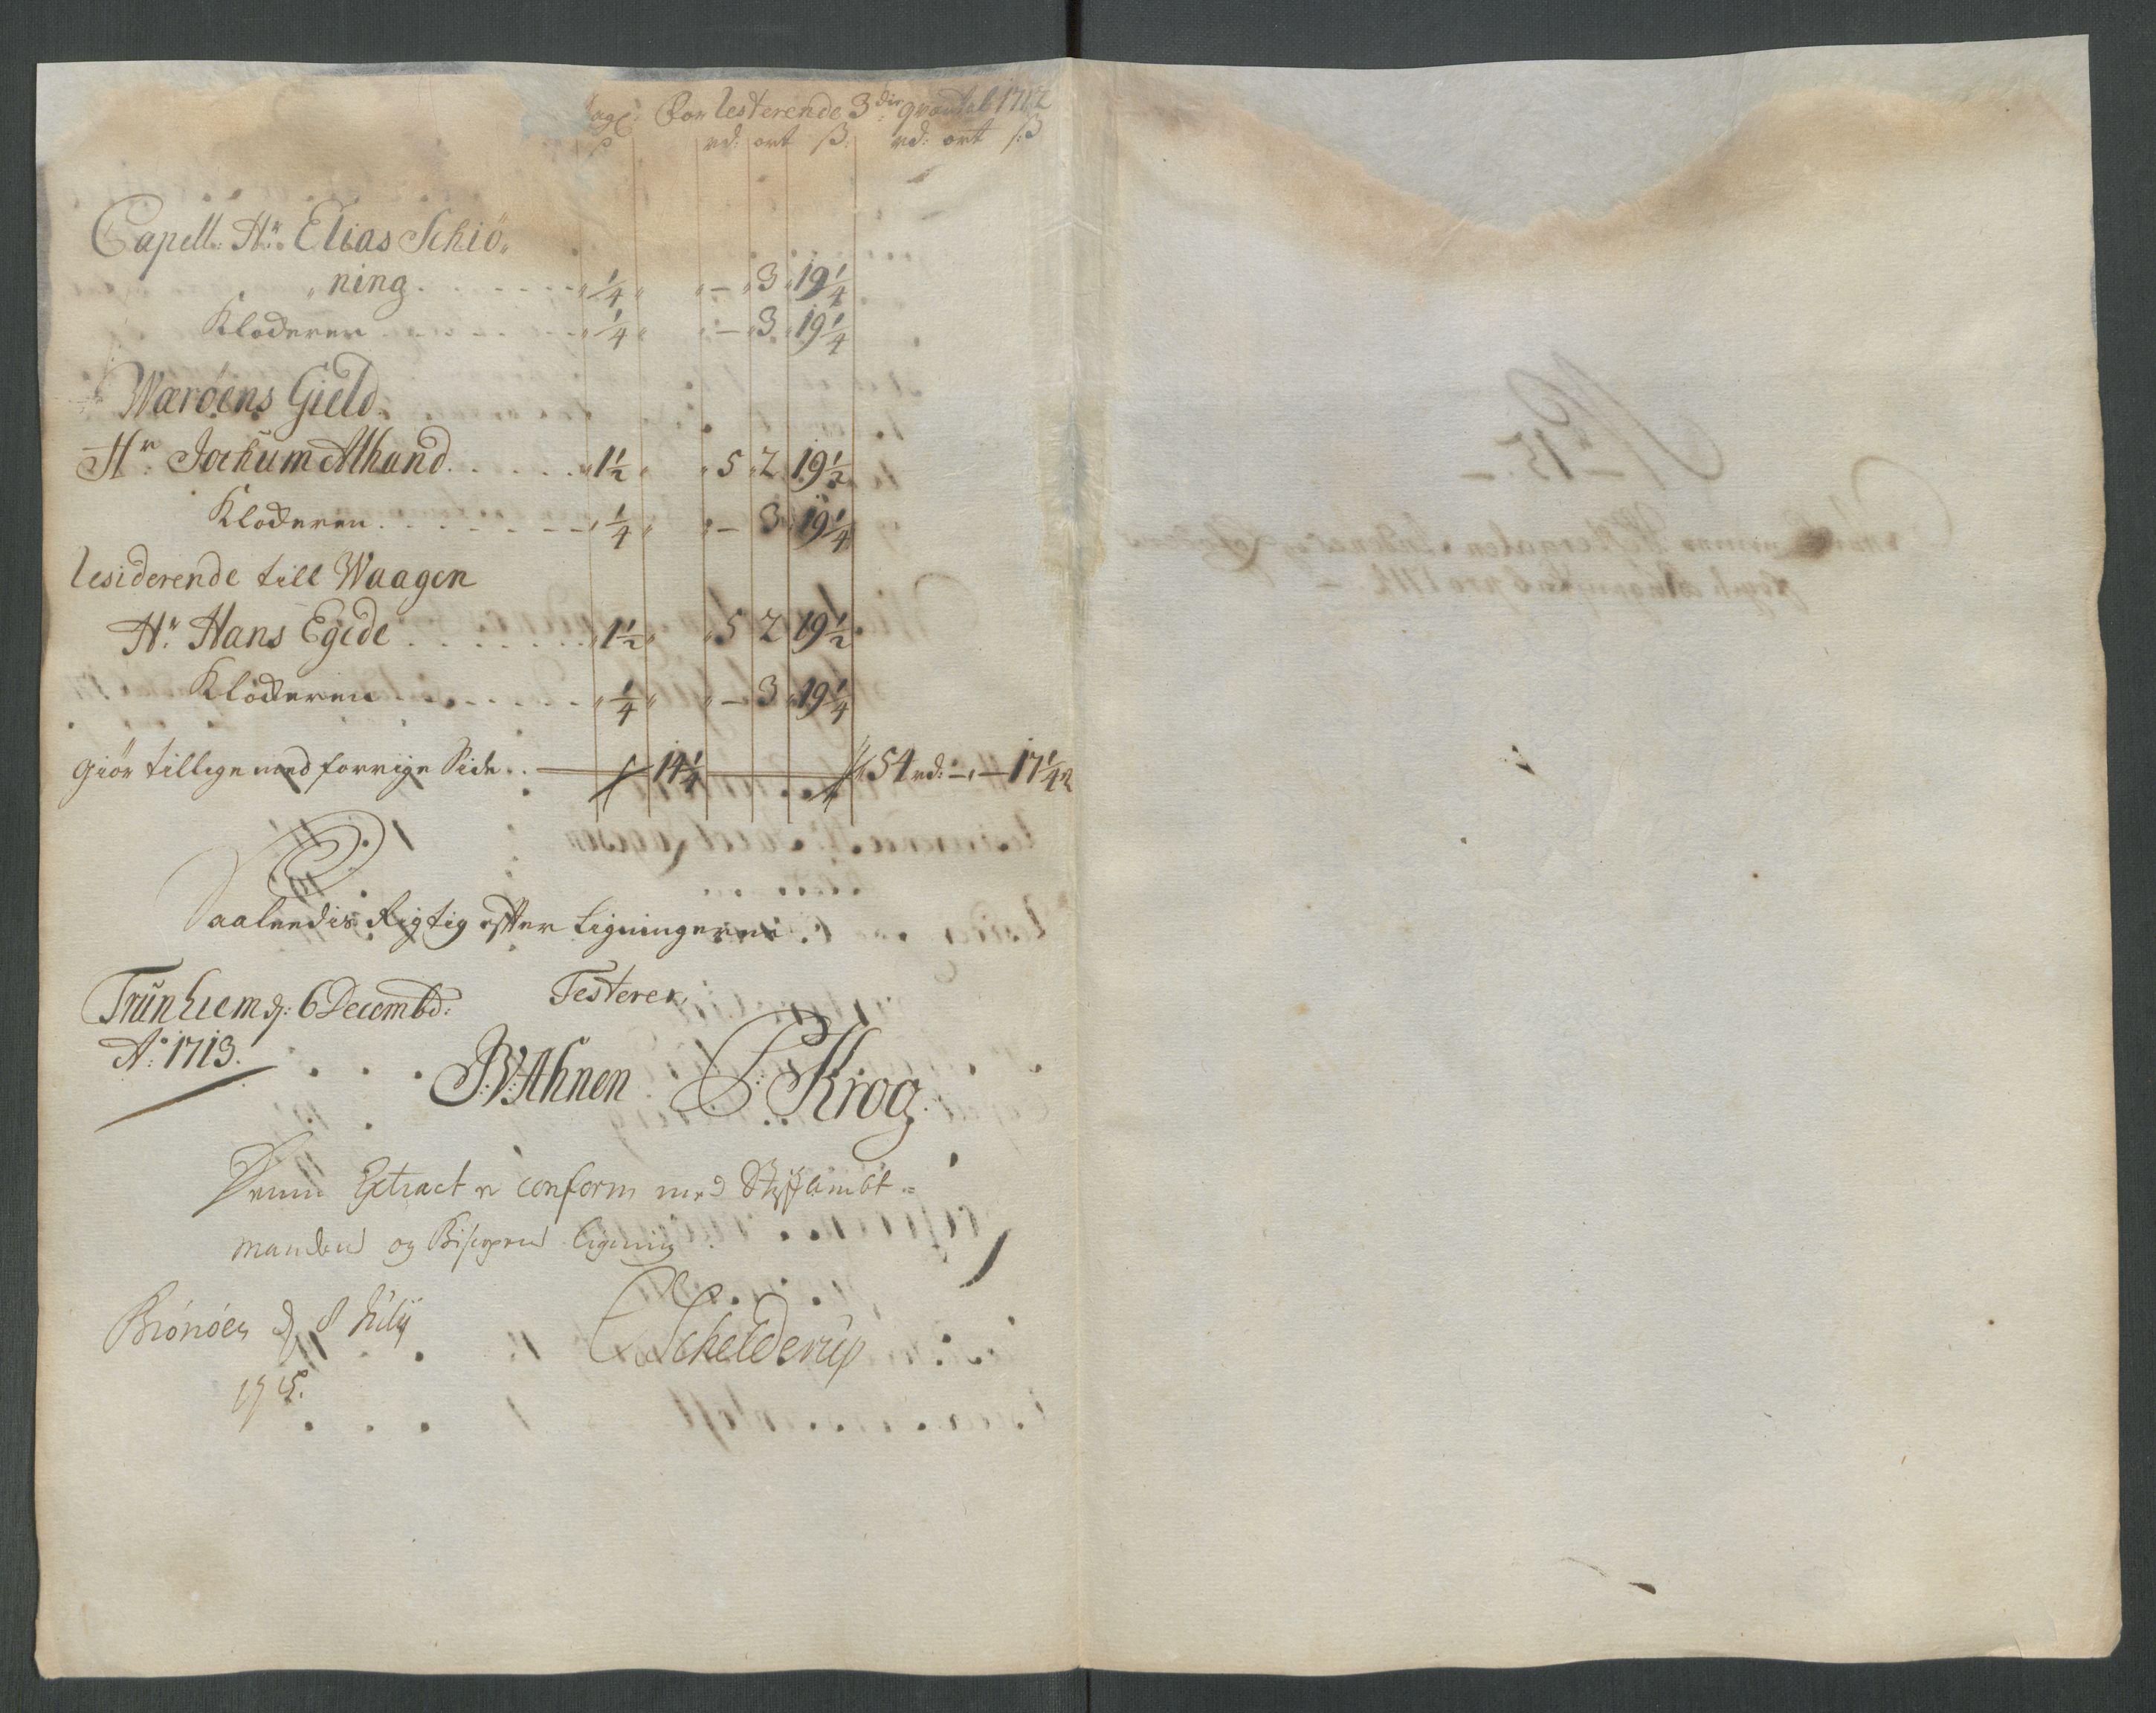 lagl: For Resterende 3die qvartal 1712
rd: ort ß: rd: ort ß
Capell: Hr: Elias Schiö„
„ning . . . . . . „ 1/4 „ „ – „ 3 „ 19 1/4
Klocheren . . . . . . „ 1/4 „ „ – „ 3 „ 19 1/4
Wærøens Gield.
Hr: Jochum Alhand . . . . . „ 1 1/2 „ „ 5 „ 2 „ 19 1/2
Klocheren . . . . . . . „ 1/4 „ „ – 3 „ 19 1/4
Residerende till Waagen
Hr: Hans Egede . . . . . . . „ 1 1/2 „ „ 5 2 19 1/2
Klocheren . . . . . . . „ 1/4 „ „ – 3 „ 19 1/4
Giør tillige med forrige Side . . 14 1/4 54 rd: – „ – 17 1/4 ß
Saaledis Rigtig efter Ligningerne .
Trünhiem d: 6 Decembr: Testerer
Ao: 1713.
J:V:Ahnen P: Krog.
Denne Extract er conform med Stiftambt=
mandens og Bispens ligning
Brönöen d 8 Julÿ
1715.
Schelderup
No 15. –
pro 1712. –